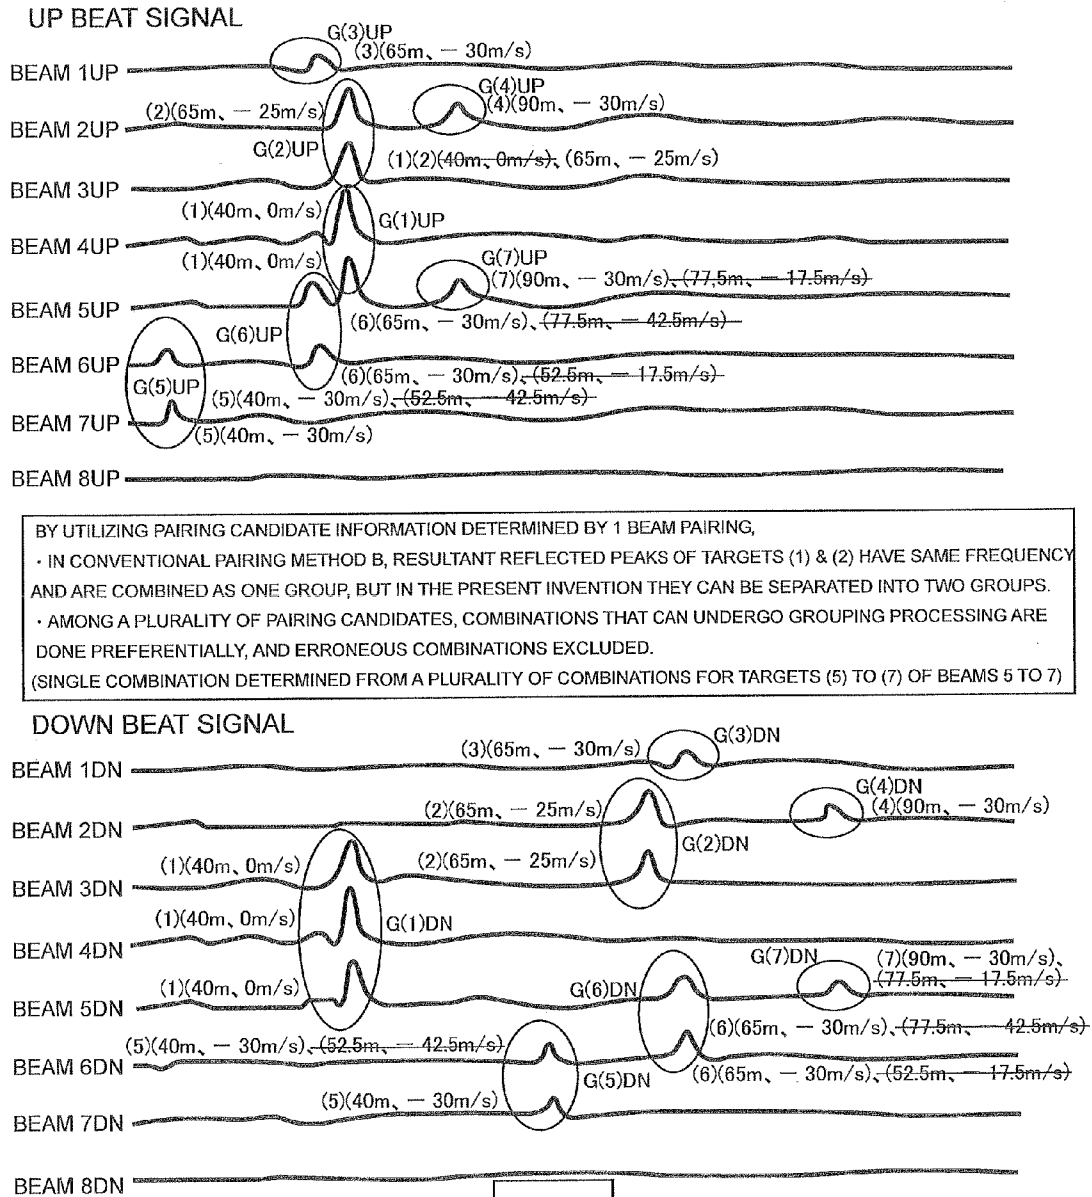 UP BEAT SIGNAL
G(3)UP
(3)(65m、－30m/s)
BEAM 1UP
G(4)UP
(2)(65m、－25m/s)
(4)(90m、－30m/s)
BEAM 2UP
G(2)UP
(1)(2)(40m、0m/s)、(65m、－25m/s)
BEAM 3UP
(1)(40m、0m/s)
G(1)UP
BEAM 4UP
(1)(40m、0m/s)
G(7)UP
(7)(90m、－30m/s)、(77,5m、－17.5m/s)
BEAM 5UP
(6)(65m、－30m/s)、(77.5m、－42.5m/s)
G(6)UP
BEAM 6UP
(6)(65m、－30m/s)、(52.5m、－17.5m/s)
G(5)UP
(5)(40m、－30m/s)、(52.5m、－42.5m/s)
BEAM 7UP
(5)(40m、－30m/s)
BEAM 8UP
BY UTILIZING PAIRING CANDIDATE INFORMATION DETERMINED BY 1 BEAM PAIRING,
・IN CONVENTIONAL PAIRING METHOD B, RESULTANT REFLECTED PEAKS OF TARGETS (1) & (2) HAVE SAME FREQUENCY
AND ARE COMBINED AS ONE GROUP, BUT IN THE PRESENT INVENTION THEY CAN BE SEPARATED INTO TWO GROUPS.
・AMONG A PLURALITY OF PAIRING CANDIDATES, COMBINATIONS THAT CAN UNDERGO GROUPING PROCESSING ARE
DONE PREFERENTIALLY, AND ERRONEOUS COMBINATIONS EXCLUDED.
(SINGLE COMBINATION DETERMINED FROM A PLURALITY OF COMBINATIONS FOR TARGETS (5) TO (7) OF BEAMS 5 TO 7)
DOWN BEAT SIGNAL
G(3)DN
(3)(65m、－30m/s)
BEAM 1DN
G(4)DN
(2)(65m、－25m/s)
(4)(90m、－30m/s)
BEAM 2DN
G(2)DN
(1)(40m、0m/s)
(2)(65m、－25m/s)
BEAM 3DN
(1)(40m、0m/s)
G(1)DN
BEAM 4DN
G(7)DN
(7)(90m、－30m/s)、
(77.5m、－17.5m/s)
(1)(40m、0m/s)
G(6)DN
BEAM 5DN
(6)(65m、－30m/s)、(77.5m、－42.5m/s)
(5)(40m、－30m/s)、(52.5m、－42.5m/s)
BEAM 6DN
G(5)DN
(6)(65m、－30m/s)、(52.5m、－17.5m/s)
(5)(40m、－30m/s)
BEAM 7DN
BEAM 8DN